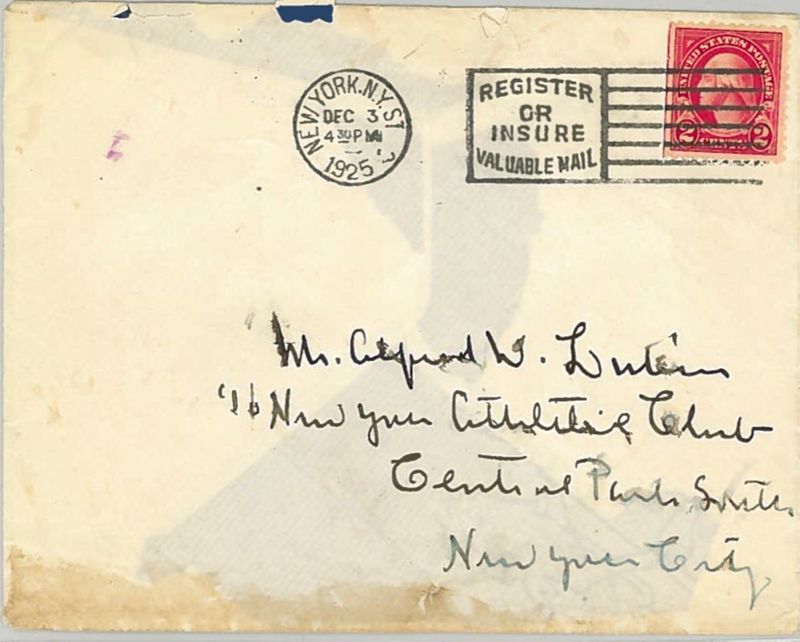 NEW YORK, N.Y. ST
DEC 3
4 30 PM
1925
REGISTER
OR
INSURE
VALUABLE MAIL
UNITED STATES POSTAGE
2 2
Mr. Alfred W.
New York Athletic Club
Central Park South
New York City